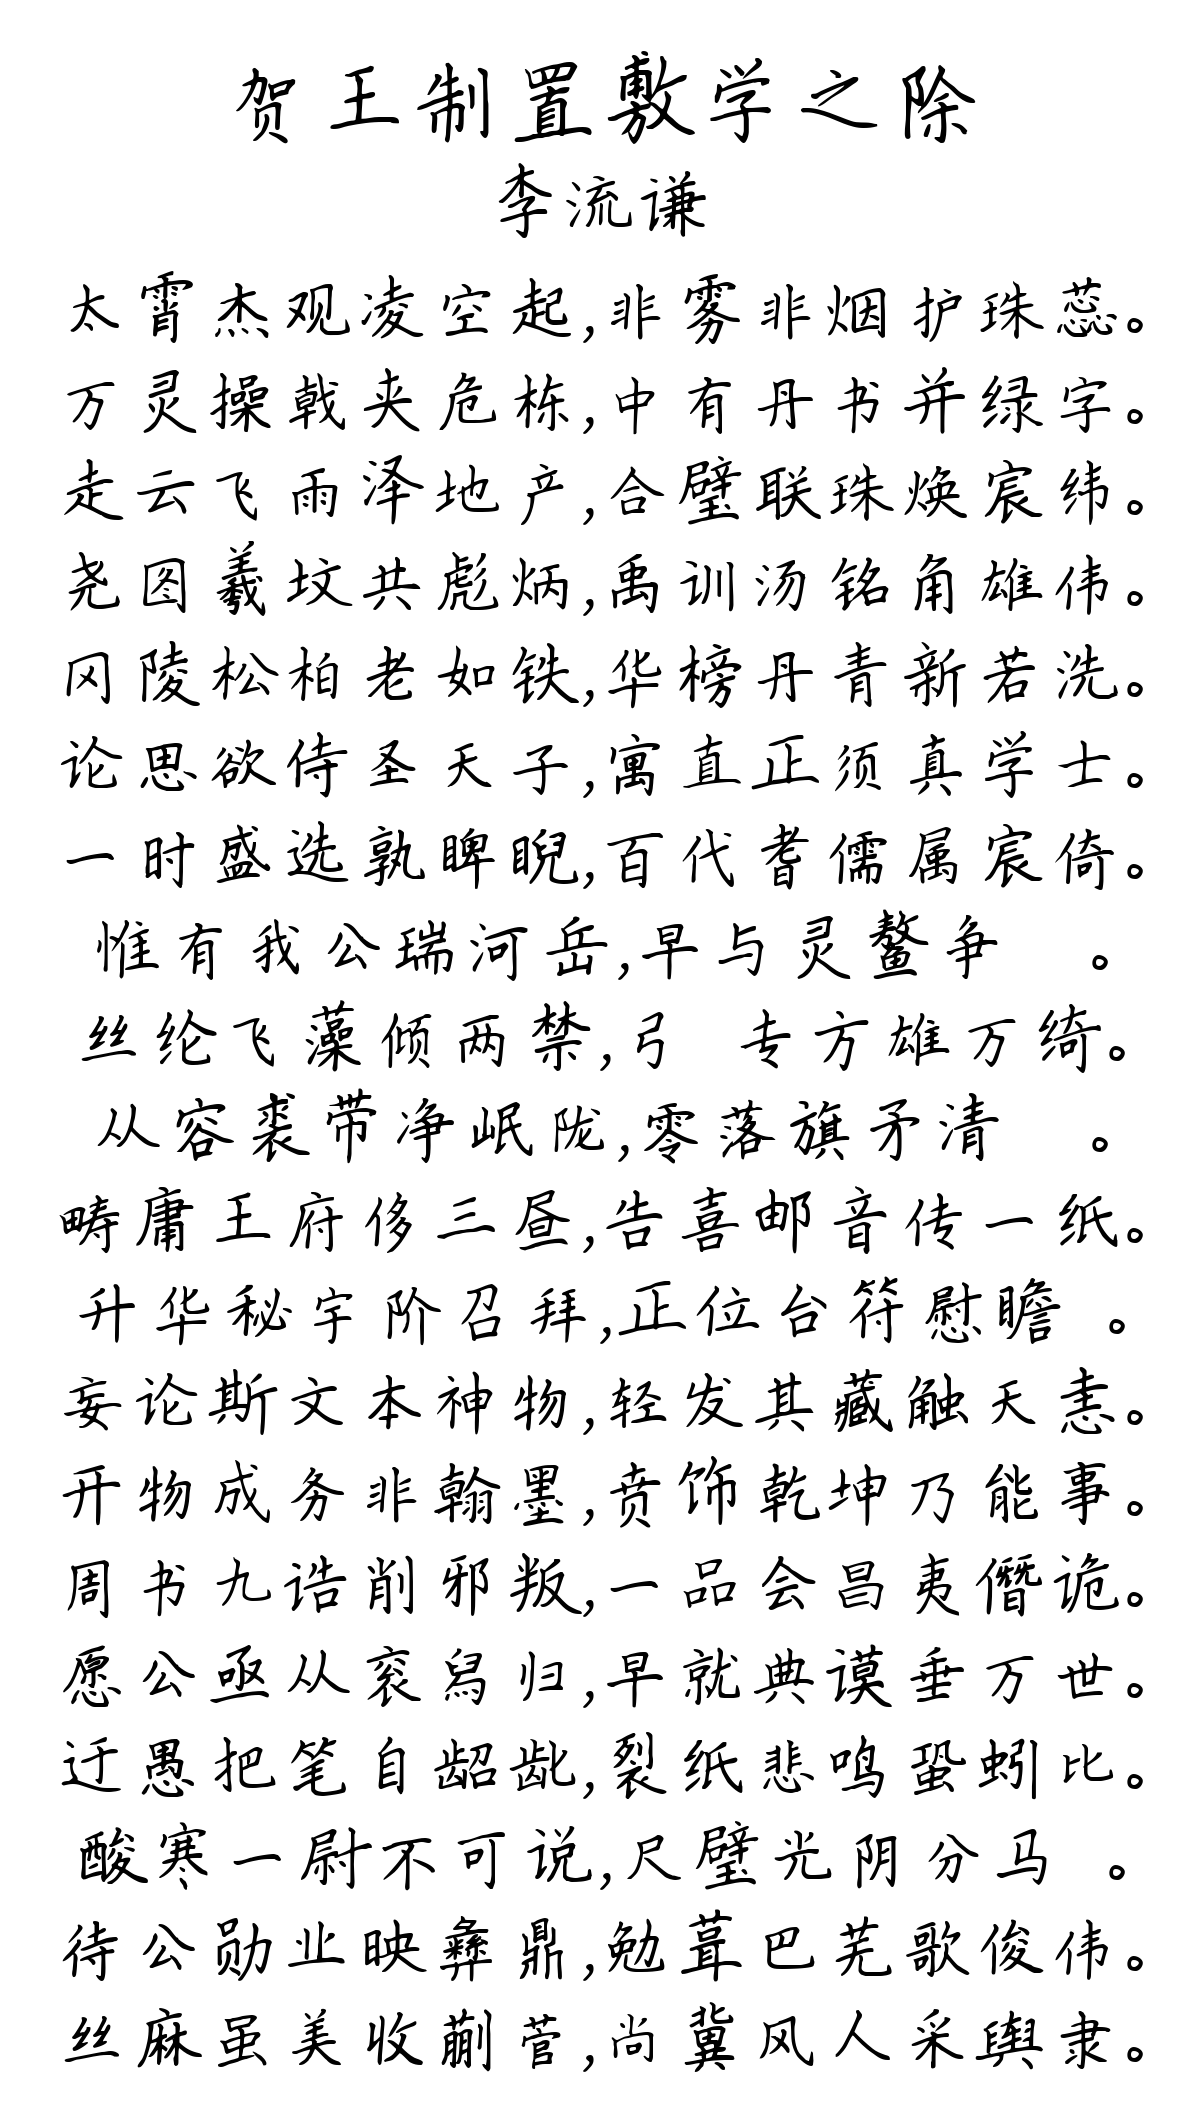 贺王制置敷学之除
李流谦
太霄杰观凌空起,非雾非烟护珠蕊。
万灵操戟夹危栋,中有丹书并绿字。
走云飞雨泽地产,合璧联珠焕宸纬。
尧图羲坟共彪炳,禹训汤铭角雄伟。
冈陵松柏老如铁,华榜丹青新若洗。
论思欲侍圣天子,寓直正须真学士。
一时盛选孰睥睨,百代耆儒属宸倚。
惟有我公瑞河岳,早与灵鳌争 。
丝纶飞藻倾两禁,弓 专方雄万绮。
从容裘带净岷陇,零落旗矛清 。
畴庸王府侈三昼,告喜邮音传一纸。
升华秘宇阶召拜,正位台符慰瞻 。
妄论斯文本神物,轻发其藏触天恚。
开物成务非翰墨,贲饰乾坤乃能事。
周书九诰削邪叛,一品会昌夷僭诡。
愿公亟从衮舄归,早就典谟垂万世。
迂愚把笔自龆龀,裂纸悲鸣蛩蚓比。
酸寒一尉不可说,尺璧光阴分马 。
待公勋业映彝鼎,勉葺巴芜歌俊伟。
丝麻虽美收蒯菅,尚冀风人采舆隶。